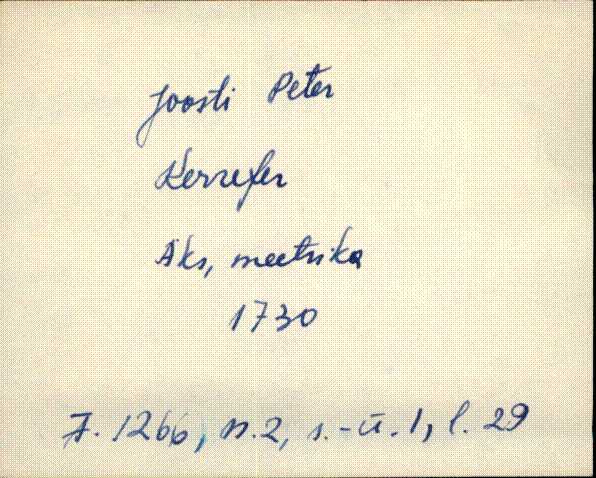 Joosti Peter
Kerrefer
Äks, meetrika
1730
F. 1266, n. 2, s.-ü. 1, l. 29